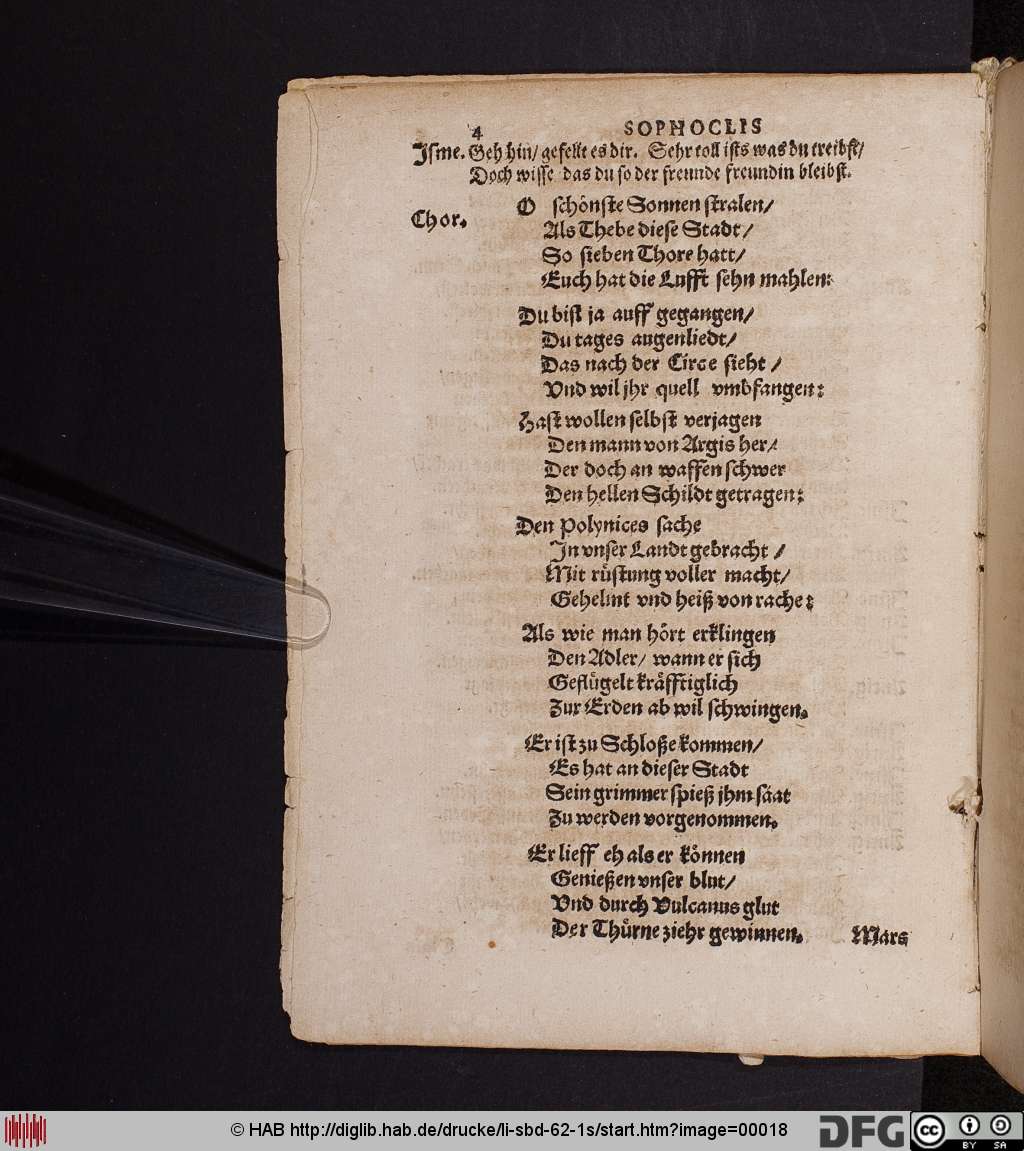 4 SOPHOCLIS
Jsme. Geh hin/ gefellt es dir. Sehr toll ists was du treibst/
Doch wisse das du so der freunde freundin bleibst.
Chor. O schönste Sonnen stralen/
Als Thebe diese Stadt/
So sieben Thore hatt/
Euch hat die Lufft sehn mahlen:
Du bist ja auff gegangen/
Du tages augenliedt/
Das nach der Circe sieht /
Vnd wil jhr quell vmbfangen:
Hast wollen selbst verjagen
Den mann von Argis her/
Der doch an waffen schwer
Den hellen Schildt getragen:
Den Polynices sache
Jn vnser Landt gebracht /
Mit rüstung voller macht/
Gehelmt vnd heiß von rache:
Als wie man hört erklingen
Den Adler/ wann er sich
Geflügelt kräfftiglich
Zur Erden ab wil schwingen.
Er ist zu Schloße kommen/
Es hat an dieser Stadt
Sein grimmer spieß jhm säat
Zu werden vorgenommen.
Er lieff eh als er können
Genießen vnser blut/
Vnd durch Vulcanus glut
Der Thürne ziehr gewinnen.
Mars
© HAB http://diglib.hab.de/drucke/li-sbd-62-1s/start.htm?image=00018
DFG
cc
BY SA